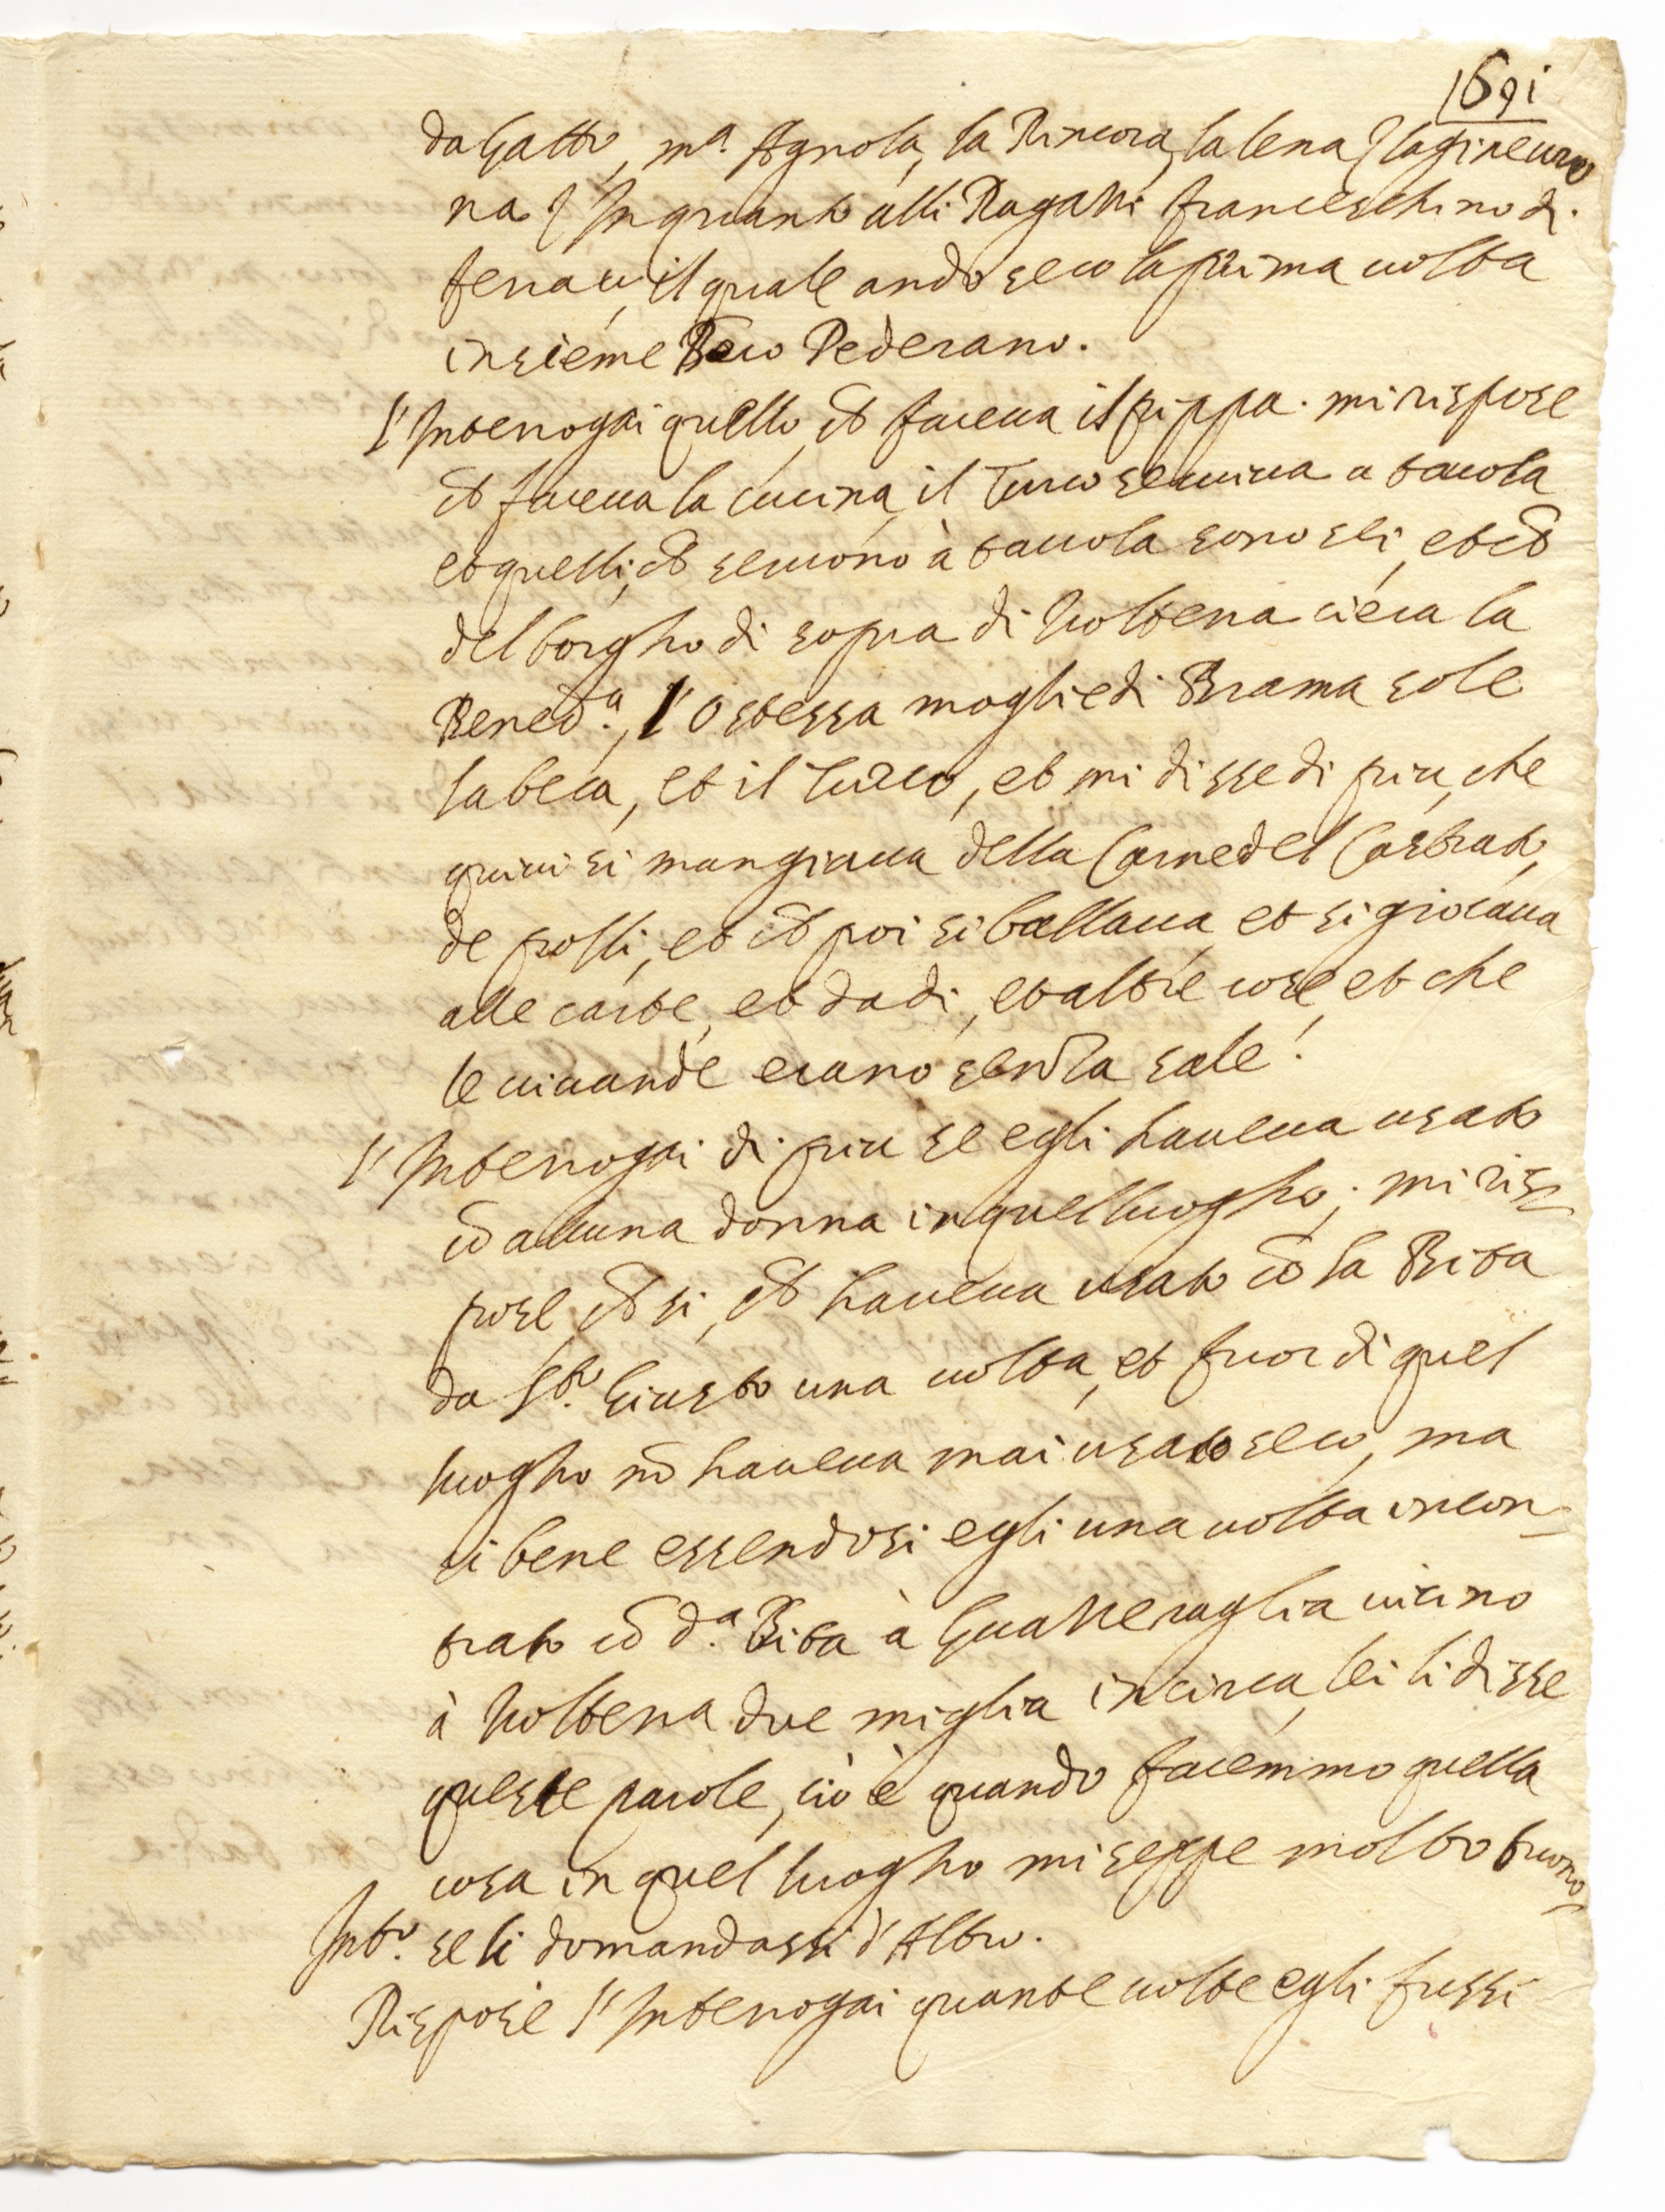 1691
da Gatto, m.ᵃ Agnola, la Rincora, la lena, la gineuro
na, In quanto alli Ragazzi franceschino di
il quale andò seco la prima uolta
insieme Beco Pederano.
L'Interrogai quello, ch̃ faceua il pippa. mi rispose
ch̃ faceua la cucina, il Turco seruiua a tauola
et quelli, ch̃ seruono à tauola sono sei, et ch̃
del borgho di sopra di Volterra ci era la
Bened.ᵃ, l'Ostessa moglie di Brama sole
la beca, et il Turco, et mi disse di piu, che
quiui si mangiaua della Carne del Castrato,
de polli, et ch̃ poi si ballaua, et si giocaua
alle carte, et dadi, et altre cose, et che
le uiuande erano senza sale.
L'Interrogai di piu se egli haueua usato
cõ alcuna donna in quel luogho; mi ris=
pose ch̃ si, ch̃ haueua usato cõ la Bita
da S.ᵗᵒ Giusto una uolta, et fuor di quel
luogho nõ haueua mai usato seco, ma
si bene essendosi egli una uolta incon=
trato cõ d.ᵃ Bita à Guazzeraglia uicino
à Volterra due miglia in circa, lei li disse
queste parole, ciò è quando facemmo quella
cosa in quel luogho mi seppe molto buono=
Int.ᵒ se li domandassi d'Altro.
Rispose L'Interrogai quante uolte egli fussi